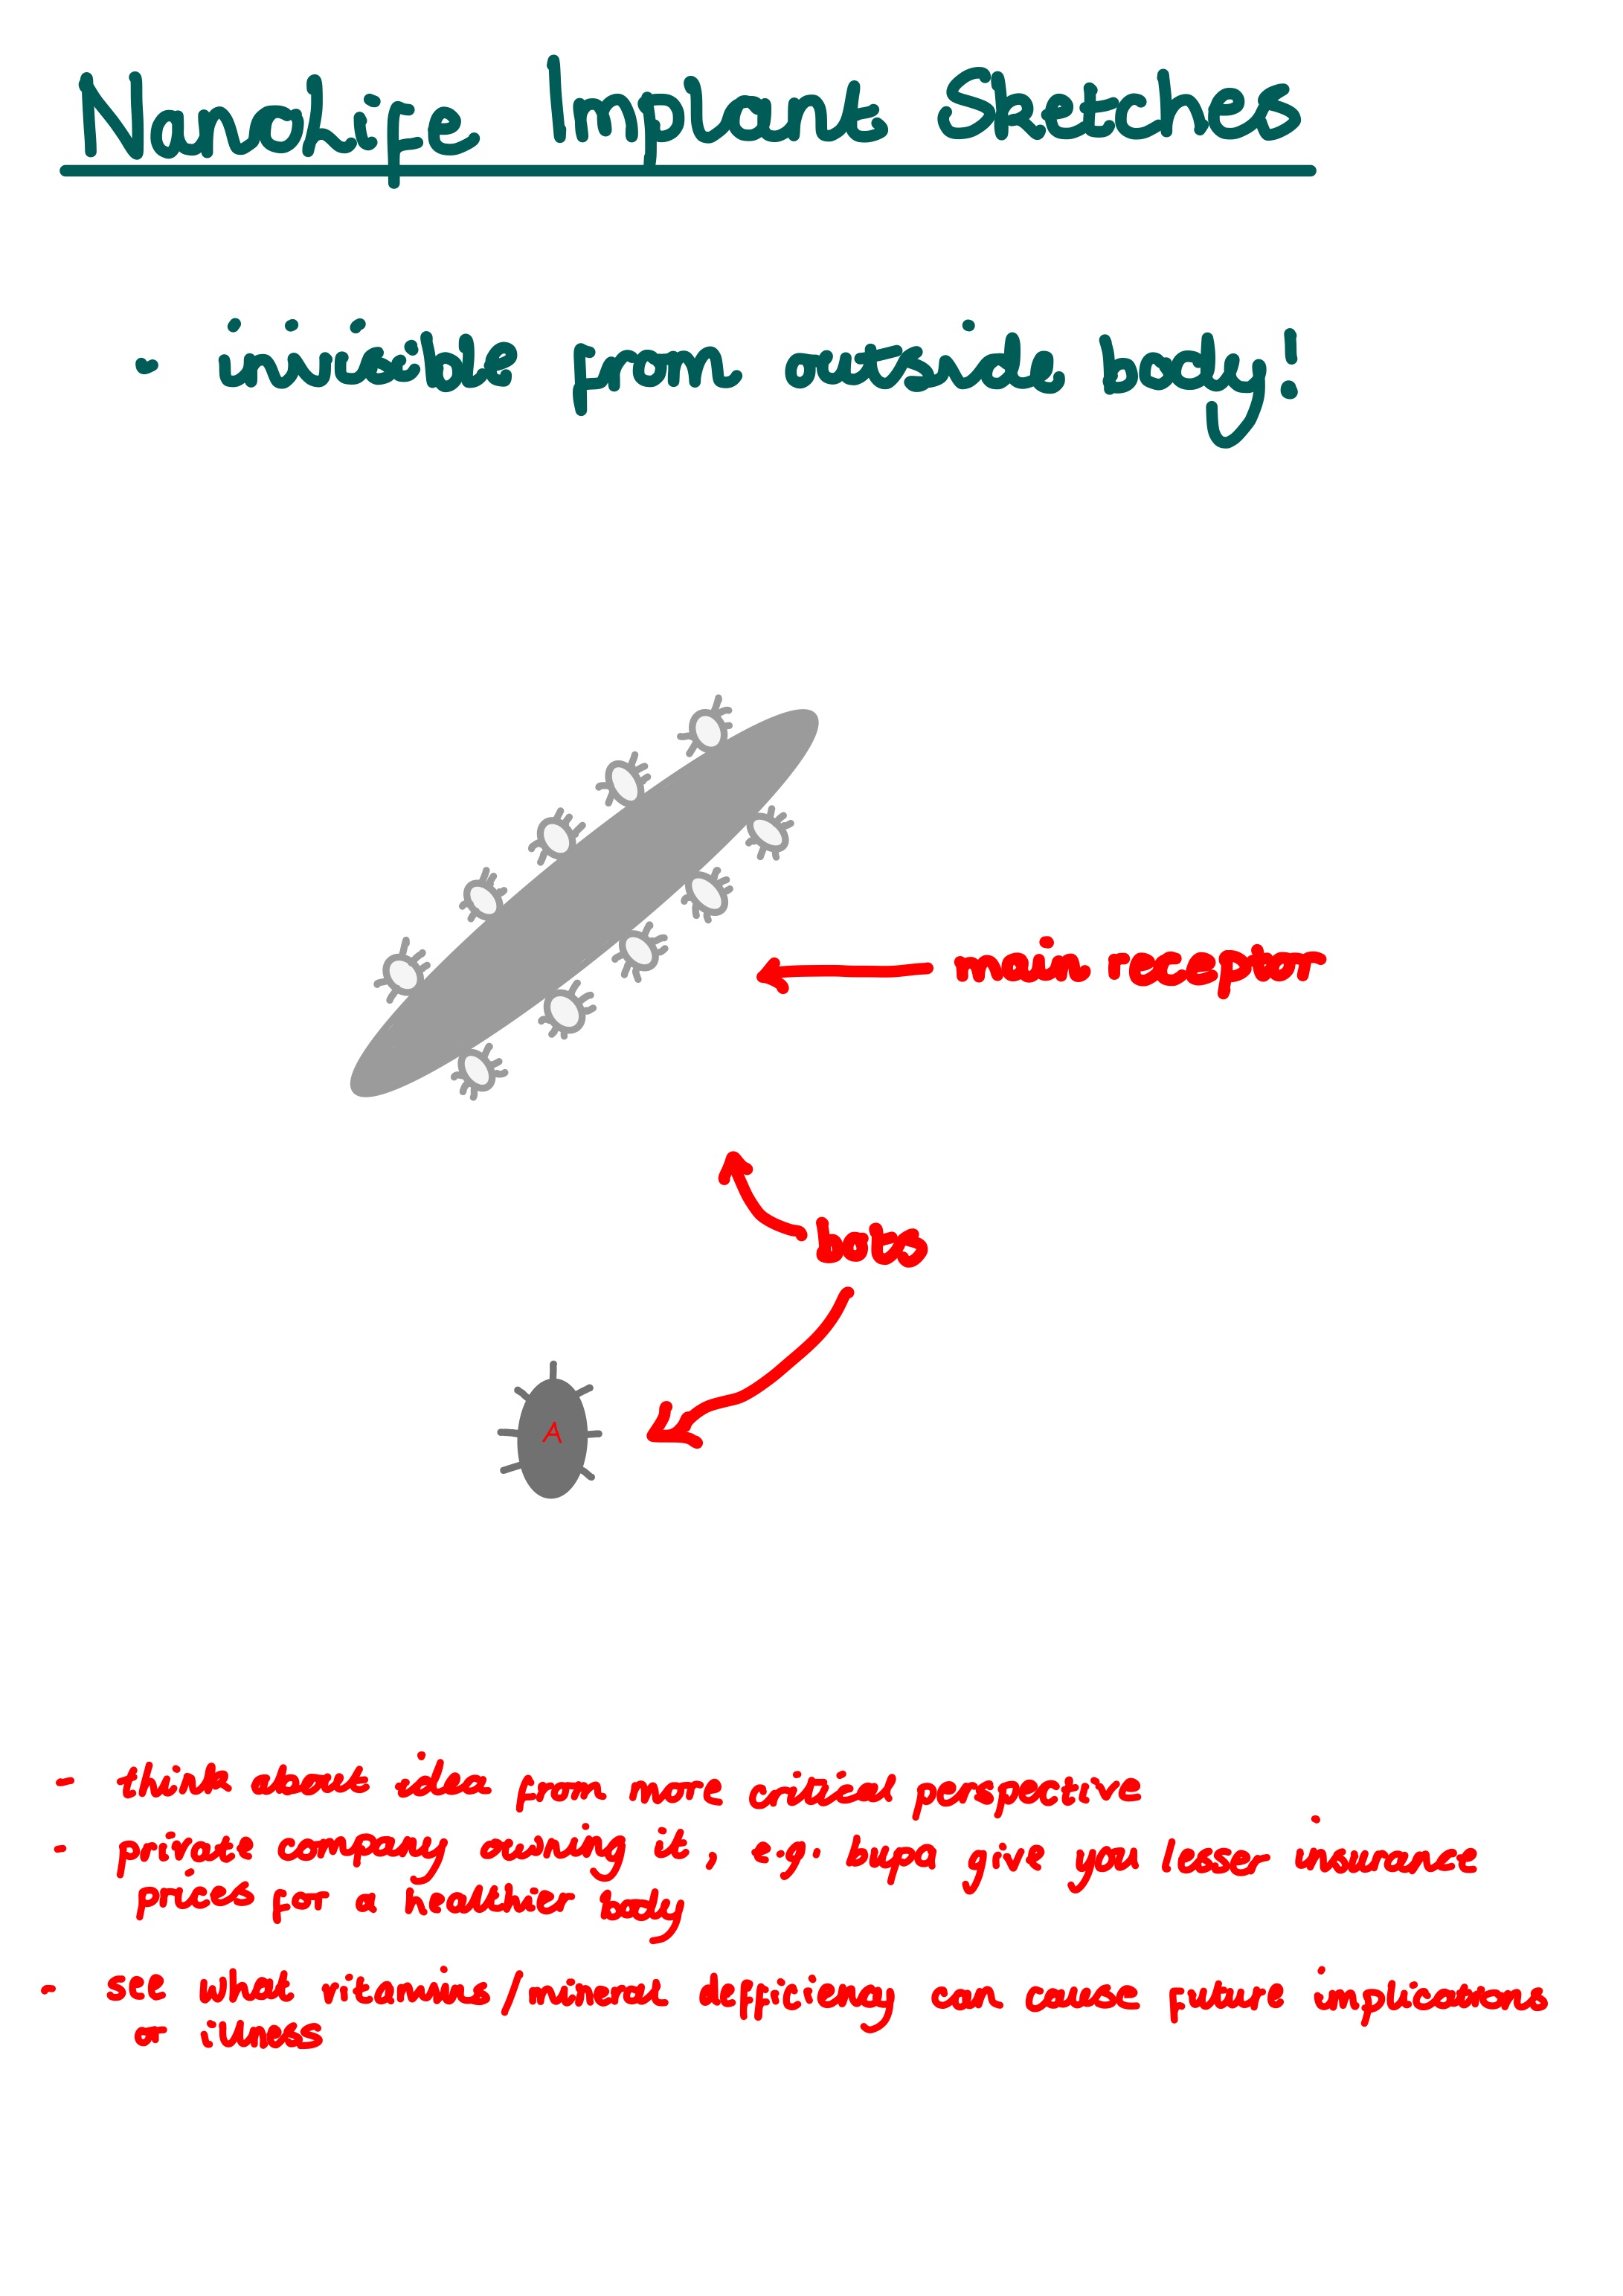 NanoLife Implant Sketches
- invisible from outside body!
main receptor
bots
A
- think about idea from more critical perspective
- private company owning it, e.g. bupa give you lesser insurance
prices for a healthier body
- see what vitamins/mineral defficiency can cause future implications
or illness